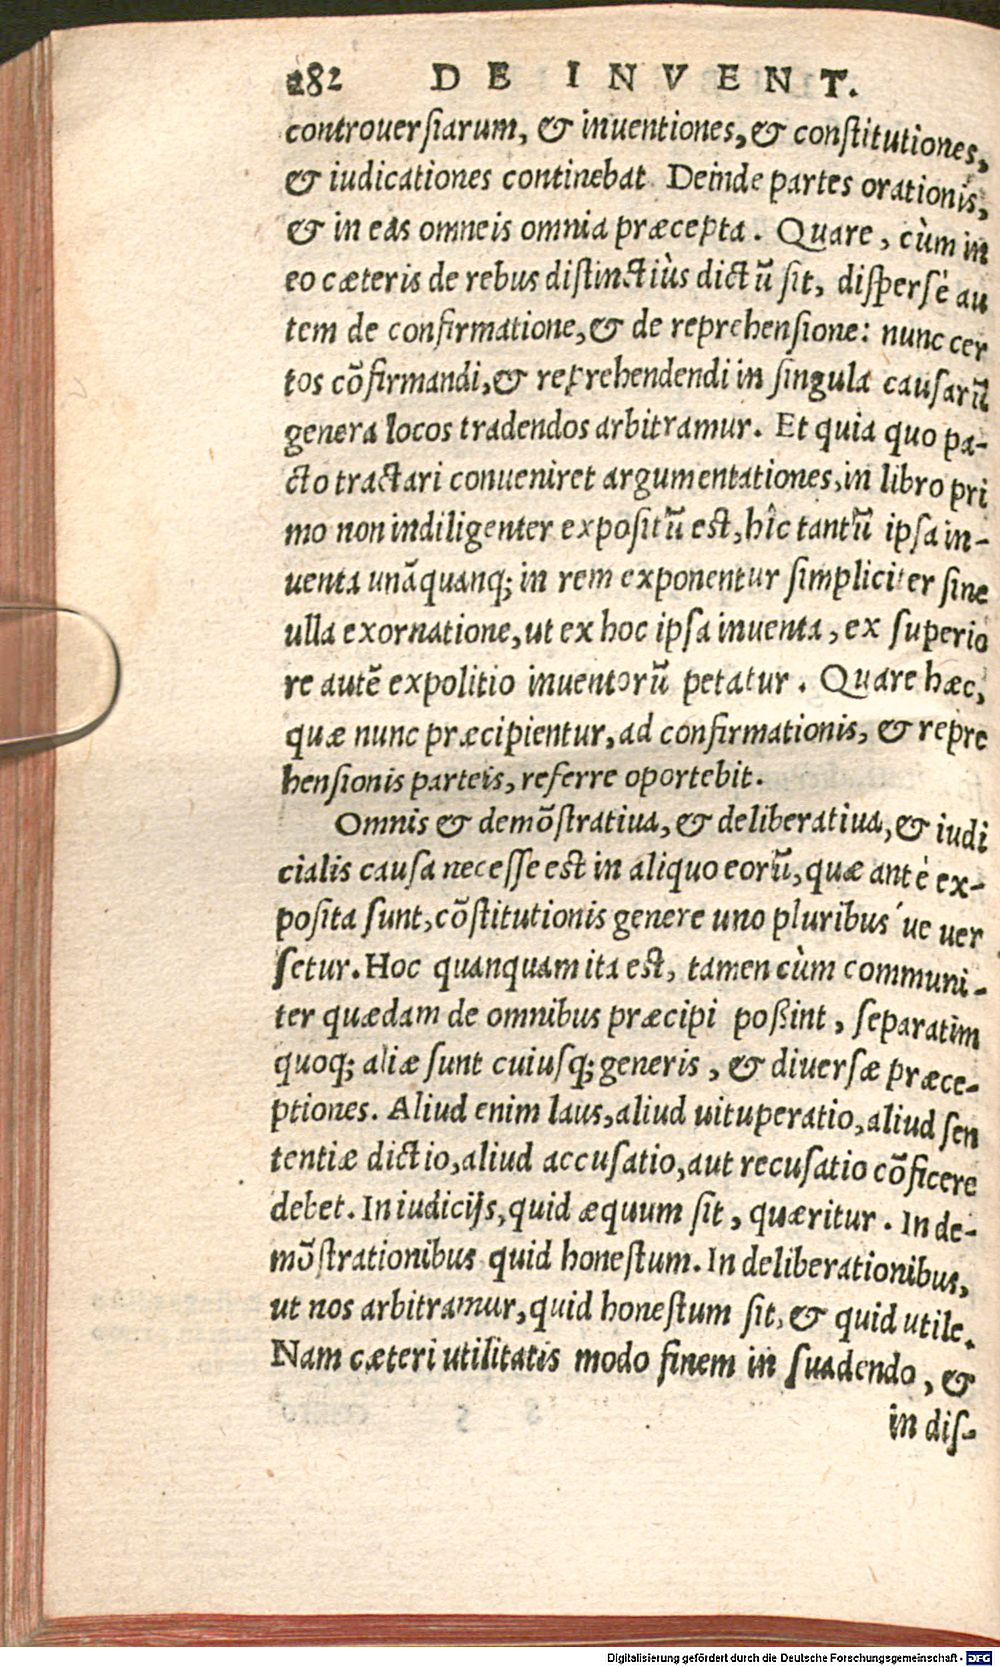 282 DE INVENT.
controuerſiarum, & inuentiones, & conſtitutiones,
& iudicationes continebat Deinde partes orationis,
& in eas omneis omnia præcepta. Quare, cùm in
eo cæteris de rebus diſtinctiùs dictũ ſit, diſperſè au
tem de confirmatione, & de reprehenſione: nunc cer
tos cõfirmandi, & reprehendendi in ſingula cauſarũ
genera locos tradendos arbitramur. Et quia quo pa-
cto tractari conueniret argumentationes, in libro pri
mo non indiligenter expoſitũ est, hîc tantũ ipſa in-
uenta unãquanq; in rem exponentur ſimpliciter ſine
ulla exornatione, ut ex hoc ipſa inuenta, ex ſuperio
re autẽ expolitio inuentorũ petatur. Quare hæc,
quæ nunc præcipientur, ad confirmationis, & repre
henſionis parteis, referre oportebit.
Omnis & demõſtratiua, & deliberatiua, & iudi
cialis cauſa neceſſe est in aliquo eorũ, quæ antè ex-
poſita ſunt, cõſtitutionis genere uno pluribus´ue uer
ſetur. Hoc quanquam ita est, tamen cùm communi-
ter quædam de omnibus præcipi poßint, ſeparatim
quoq; aliæ ſunt cuiuſq; generis, & diuerſæ præce-
ptiones. Aliud enim laus, aliud uituperatio, aliud ſen
tentiæ dictio, aliud accuſatio, aut recuſatio cõficere
debet. In iudicijs, quid æquum ſit, quæritur. In de-
mõſtrationibus quid honeſtum. In deliberationibus,
ut nos arbitramur, quid honeſtum ſit, & quid utile.
Nam cæteri utilitatis modo finem in ſuadendo, &
in diſ-
Digitalisierung gefördert durch die Deutsche Forschungsgemeinschaft - DFG